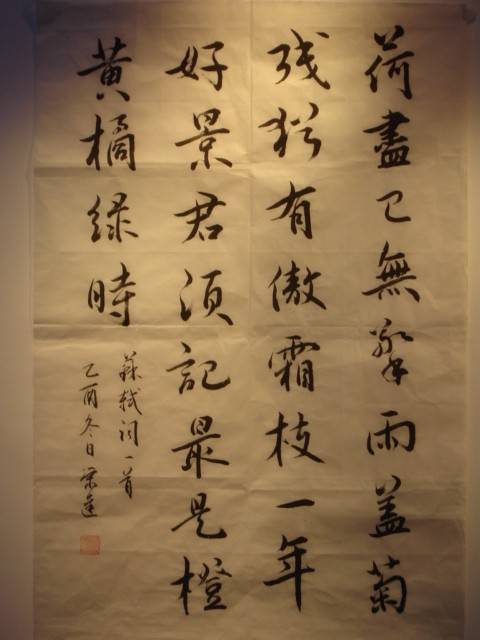 荷盡已無擎雨盖菊
残猶有傲霜枝一年
好景君須記最是橙
黄橘绿時
蘇軾词一首
乙酉冬日